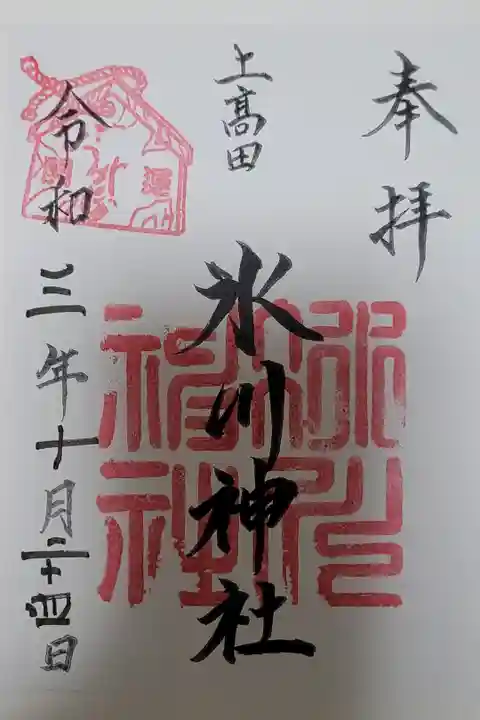 奉拝
上高田
氷川神社
令和三年十月二十四日